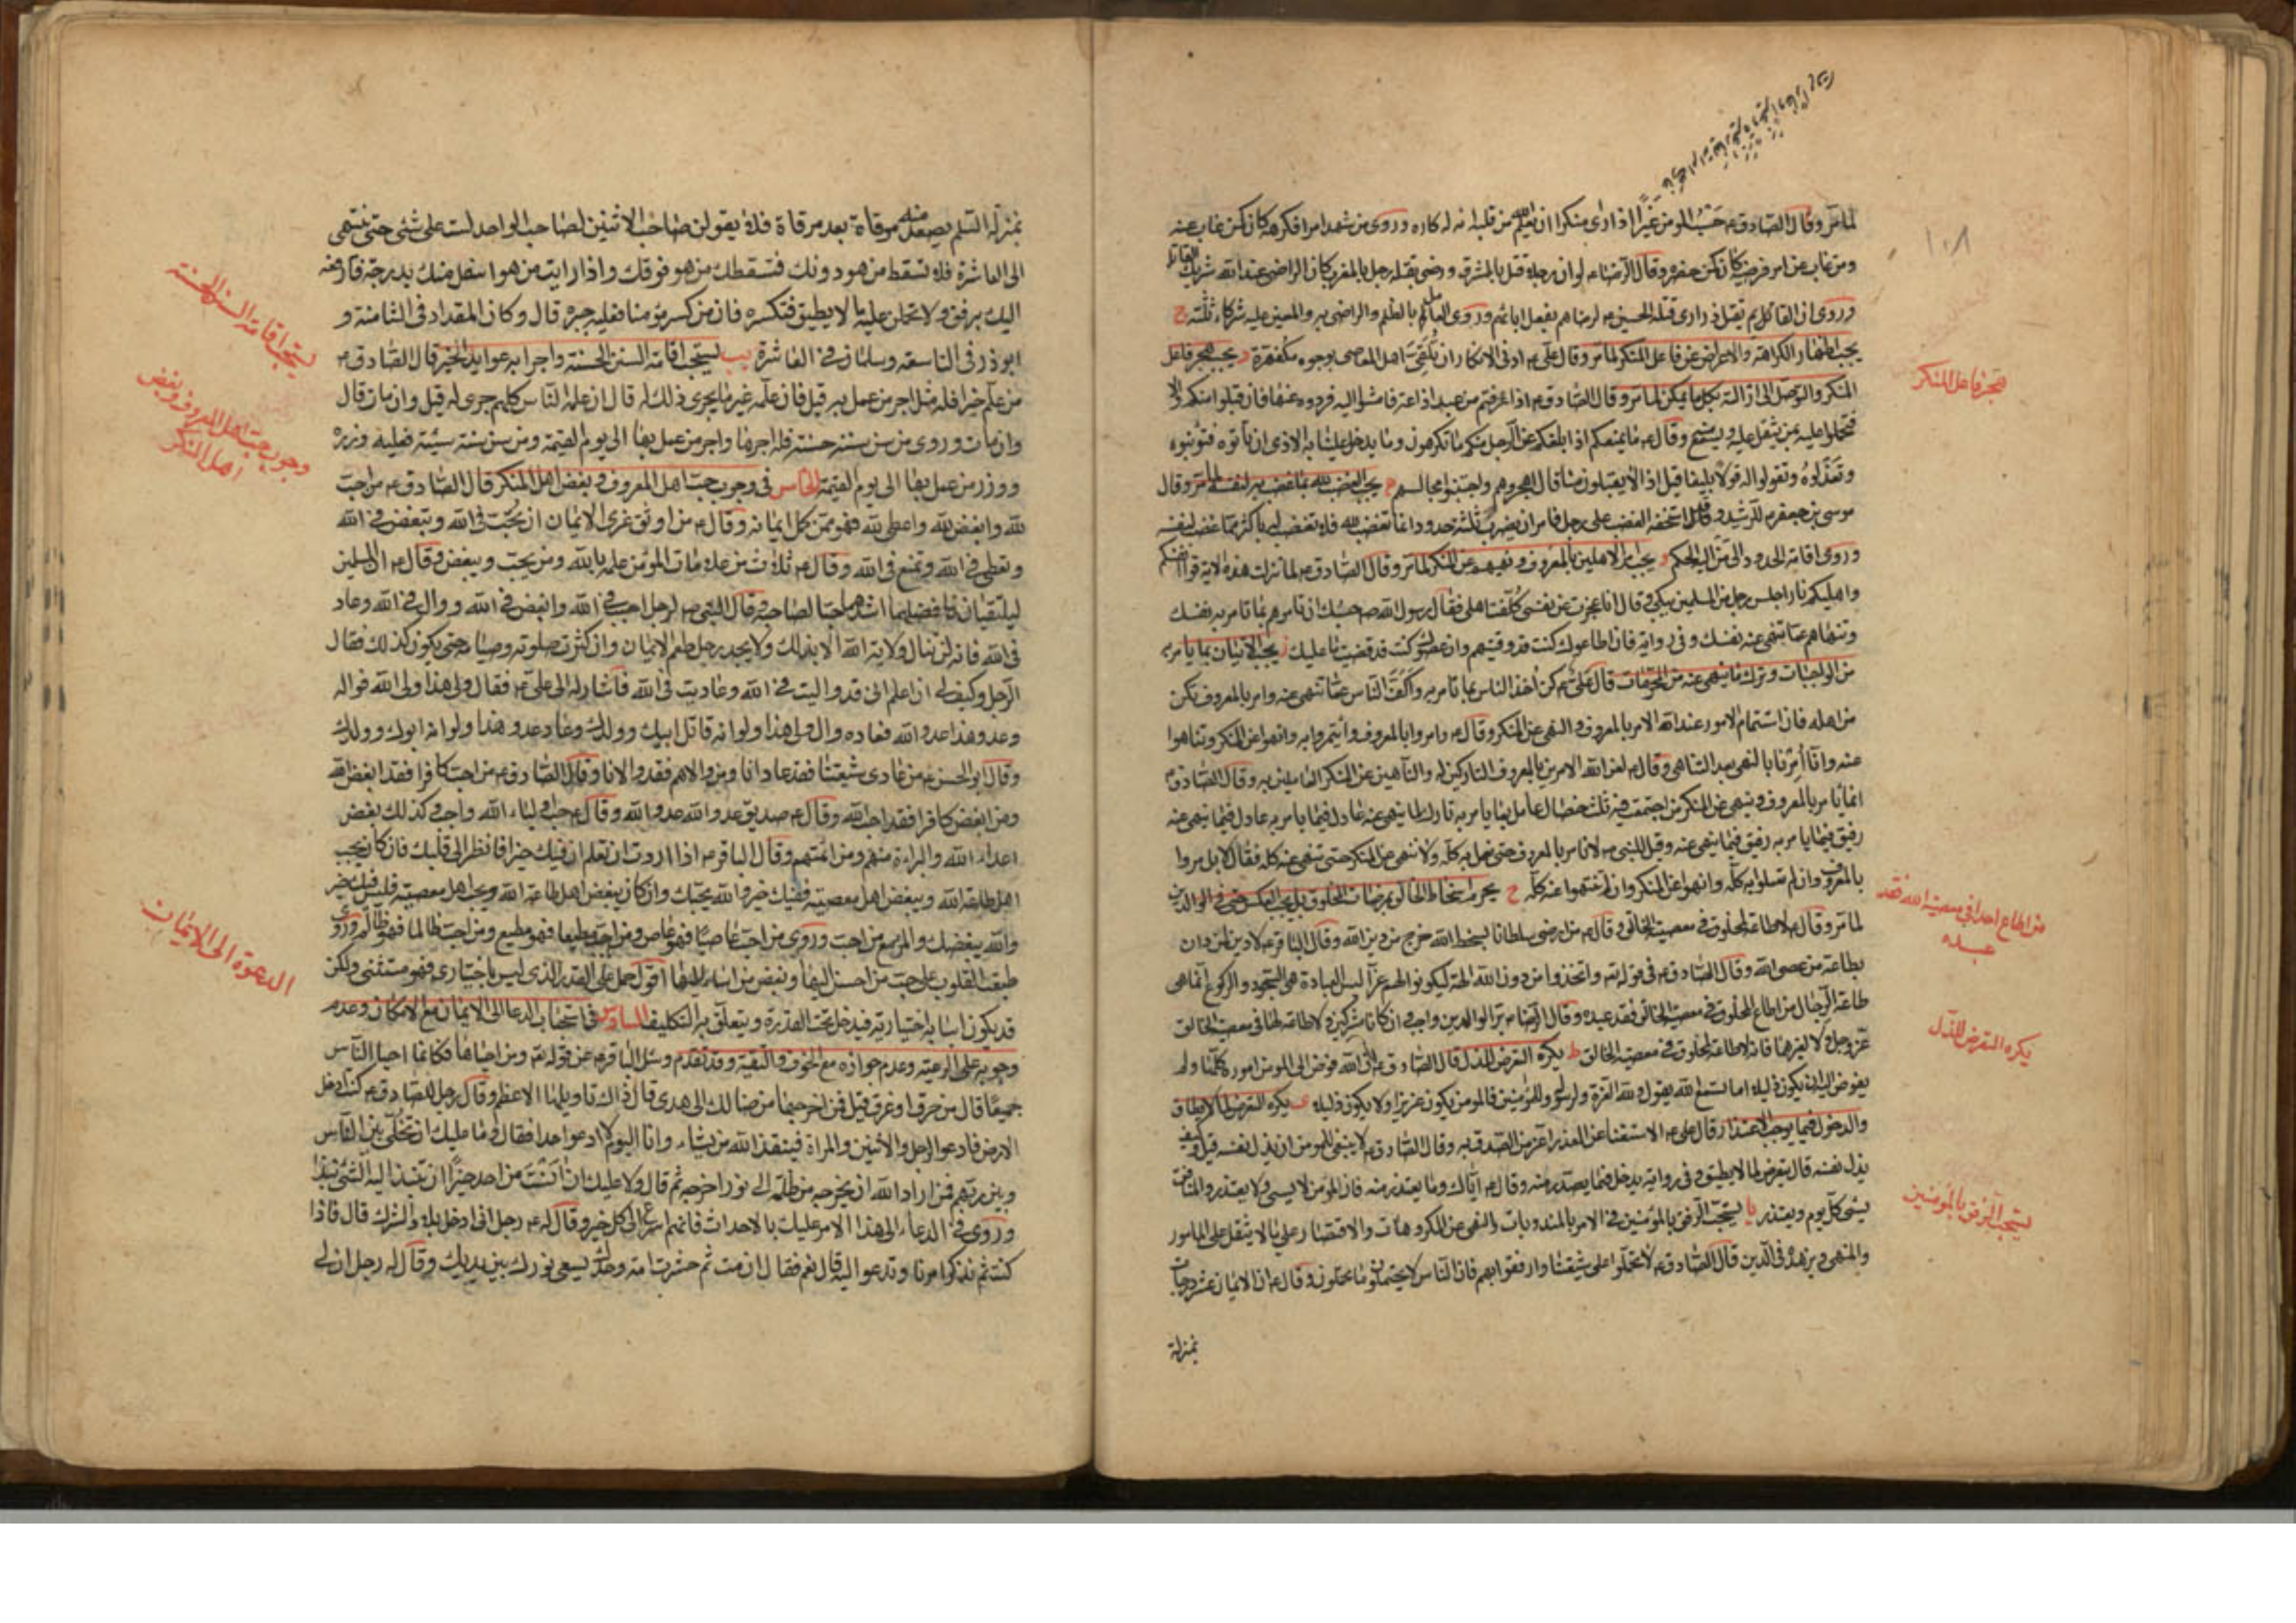 ١٠٨
لما مر وقال الصادق ع حسب المومن غيرا اذا راى منكرا ان يعلم الله من قلبه انه له كاره وروى من شهد امرا فكرهه كان كمن غاب عنه
ومن غاب عن امر فرضيه كان كمن شهده وقال الرضا ع لو ان رجلا قتل بالمشرق ورضى بقتله رجل بالمغرب كان الراضى عند الله شريك القاتل
وروى ان القائم يقتل ذرارى قتلة الحسين ع لرضاهم بفعل ابائهم وروى العامل بالظلم والراضى به والمعين عليه شركاء ثلثة ج
يجب اظهار الكراهة والاعراض عن فاعل المنكر لما مر وقال على ع ادنى الانكار ان تلقى اهل المعاصى بوجوه مكفهرة د يجب هجر فاعل
المنكر والتوصل الى ازالته بكل ما يمكن لما مر وقال الصادق ع
فتحملوا عليه بمن يثقل عليه ويسمع وقال ع ما يمنعكم اذا بلغكم عن الرجل منكم ما تكرهون وما يدخل علينا به الاذى ان تاتوه فتؤنبوه
وتعذلوه وتقولوا له قولا بليغا قيل اذا لا يقبلون منا قال اهجروهم واجتنبوا مجالسهم ه يجب الغضب لله بما غضب به لنفسه لما مر وقال
موسى بن جعفر ع للرشيد وقد استخفه الغضب على رجل فامر ان يضرب ثلثة حدود انما تغضب لله فلا تغضب له باكثر مما غضب لنفسه
وروى اقامة الحدود الى من اليه الحكم و يجب امر الاهلين بالمعروف ونهيهم عن المنكر لما مر وقال الصادق ع لما نزلت هذه الاية قوا انفسكم
واهليكم نارا جلس رجل من المسلمين يبكى وقال انا عجزت عن نفسى كلفت اهلى فقال رسول الله ص حسبك ان تامرهم بما تامر به نفسك
وتنهاهم عما تنهى عنه نفسك وفى رواية فان اطاعوك كنت قد وقيتهم وان عصوك كنت قد قضيت ما عليك ز يجب الاتيان بما يامر به
من الواجبات وترك ما ينهى عنه من المحرمات قال على ع كن اخذ الناس بما تامر به واكف الناس عما تنهى عنه وامر بالمعروف تكن
من اهله فان استتمام الامور عند الله الامر بالمعروف والنهى عن المنكر وقال ع وامروا بالمعروف وائتمروا به وانهوا عن المنكر وتناهوا
عنه وانما امرنا بالنهى بعد التناهى وقال ع لعن الله الامرين بالمعروف التاركين له والناهين عن المنكر العاملين به وقال الصادق ع
انما يامر بالمعروف وينهى عن المنكر من اجتمعت فيه ثلث خصال عامل بما يامر به تارك لما ينهى عنه عادل فيما يامر به عادل فيما ينهى عنه
رفيق فيما يامر به رفيق فيما ينهى عنه وقيل للنبى ص لا نامر بالمعروف حتى نعمل به كله ولا ننهى عن المنكر حتى ننتهى عنه كله فقال لا بل مروا
بالمعروف وان لم تعملوا به كله وانهوا عن المنكر وان لم تنتهوا عنه كله ح يحرم اسخاط الخالق بمرضات المخلوق بل يجب العكس حتى فى الوالدين
لما مر وقال ع لا طاعة لمخلوق فى معصية الخالق وقال ع من ارضى سلطانا بسخط الله خرج من دين الله وقال الباقر ع لا دين لمن دان
بطاعة من عصى الله وقال الصادق ع فى قوله تع واتخذوا من دون الله الهة ليكونوا لهم عزا ليس العبادة هى السجود والركوع انما هى
طاعة الرجال من اطاع المخلوق فى معصية الخالق فقد عبده وقال الرضا ع بر الوالدين واجب وان كانا مشركين ولا طاعة لهما فى معصية الخالق
عز وجل ولا لغيرهما فانه لا طاعة لمخلوق فى معصية الخالق ط يكره التعرض للذل قال الصادق ع ان الله فوض الى المومن اموره كلها ولم
يفوض اليه ان يكون ذليلا اما تسمع الله يقول ولله العزة ولرسوله وللمؤمنين فالمومن يكون عزيزا ولا يكون ذليلا ى يكره التعرض لما لا يطاق
والدخول فيما يوجب الاعتذار قال على ع الاستغناء عن العذر اعز من الصدق به وقال الصادق ع لا ينبغى للمومن ان يذل نفسه قيل وكيف
يذل نفسه قال يتعرض لما لا يطيق وفى رواية يدخل فيما يعتذر منه وقال ع اياك وما يعتذر منه فان المومن لا يسئ ولا يعتذر والمنافق
يسئ كل يوم ويعتذر يا يستحب الرفق بالمؤمنين فى الامر بالمندوبات والنهى عن المكروهات والاقتصار على ما لا يثقل على المامور
والمنهى ويزهده فى الدين قال الصادق ع لا تحملوا على شيعتنا وارفقوا بهم فان الناس لا يحتملون ما تحملون وقال ع ان الايمان عشر درجات
بمنزلة
هجر فاعل المنكر
من اطاع احدا فى معصية الله فقد
عبده
يكره التعرض للذل
يستحب الرفق بالمؤمنين
بمنزلة السلم يصعد منه مرقاة بعد مرقاة فلا يقولن صاحب الاثنين لصاحب الواحد لست على شئ حتى ينتهى
الى العاشرة فلا تسقط من هو دونك فيسقطك من هو فوقك واذا رايت من هو اسفل منك بدرجة فارفعه
اليك برفق ولا تحملن عليه ما لا يطيق فتكسره فان من كسر مؤمنا فعليه جبره قال وكان المقداد فى الثامنة و
ابوذر فى التاسعة وسلمان فى العاشرة يب يستحب اقامة السنن الحسنة واجراء عوايد الخير قال الصادق ع
من علم خيرا فله مثل اجر من عمل به قيل فان علمه غيره يجرى ذلك له قال ان علمه الناس كلهم جرى له قيل وان مات قال
وان مات وروى من سن سنة حسنة فله اجرها واجر من عمل بها الى يوم القيمة ومن سن سنة سيئة فعليه وزره
ووزر من عمل بها الى يوم القيمة الخامس فى وجوب حب اهل المعروف وبغض اهل المنكر قال الصادق ع من احب
لله وابغض لله واعطى لله فهو ممن كمل ايمانه وقال ع من اوثق عرى الايمان ان تحب فى الله وتبغض فى الله
وتعطى فى الله وتمنع فى الله وقال ع ثلاث من علامات المؤمن علمه بالله ومن يحب ويبغض وقال ع ان المسلمين
ليلتقيان فافضلهما اشدهما حبا لصاحبه وقال النبى ص لرجل احبب فى الله وابغض فى الله ووال فى الله وعاد
فى الله فانه لن تنال ولاية الله الا بذلك ولا يجد رجل طعم الايمان وان كثرت صلوته وصيامه حتى يكون كذلك فقال
الرجل وكيف لى ان اعلم انى قد واليت فى الله وعاديت فى الله فاشار له الى على ع فقال ولى هذا ولى الله فواله
وعدو هذا عدو الله فعاده ووال ولى هذا ولو انه قاتل ابيك وولدك وعاد عدو هذا ولو انه ابوك وولدك
وقال ابو الحسن ع من عادى شيعتنا فقد عادانا ومن والاهم فقد والانا وقال الصادق ع من احب كافرا فقد ابغض الله
ومن ابغض كافرا فقد احب الله وقال ع صديق عدو الله عدو الله وقال ع حب اولياء الله واجب وكذلك بغض
اعداء الله والبراءة منهم ومن ائمتهم وقال الباقر ع اذا اردت ان تعلم ان فيك خيرا فانظر الى قلبك فان كان يحب
اهل طاعة الله ويبغض اهل معصيته ففيك خير والله يحبك وان كان يبغض اهل طاعة الله ويحب اهل معصيته فليس فيك خير
والله يبغضك والمرء مع من احب وروى من احب عاصيا فهو عاص ومن احب مطيعا فهو مطيع ومن احب ظالما فهو ظالم وروى
طبعت القلوب على حب من احسن اليها وبغض من اساء اليها اقول حمل على القدر الذى ليس باختيارى فهو مستثنى ولكن
قد يكون اسبابه اختيارية فيدخل تحت القدرة ويتعلق به التكليف السادس فى استحباب الدعاء الى الايمان مع الامكان وعدم
وجوبه على الرعية وعدم جوازه مع الخوف والتقية وقد تقدم وسئل الباقر ع عن قوله تع ومن احياها فكانما احيا الناس
جميعا قال من حرق او غرق قيل فمن اخرجها من ضلال الى هدى قال ذاك تاويلها الاعظم وقال رجل للصادق ع كنت ادخل
الارض فادعو الرجل والاثنين والمراة فينقذ الله من يشاء وانا اليوم لا ادعو احدا فقال وما عليك ان تخلى بين الناس
وبين ربهم فمن اراد الله ان يخرجه من ظلمة الى نور اخرجه ثم قال ولا عليك ان انست من احد خيرا ان تنبذ اليه الشئ نبذا
وروى فى الدعاء الى هذا الامر عليك بالاحداث فانهم اسرع الى كل خير وقال له ع رجل انى ادخل بلاد الشرك قال فاذا
كنت ثم تذكر امرنا وتدعو اليه قال نعم فقال ان مت ثم حشرت امة وحدك يسعى نورك بين يديك وقال له رجل ان لى
يستحب اقامة السنن الحسنة
وجوب حب اهل المعروف وبغض
اهل المنكر
الدعوة الى الايمان